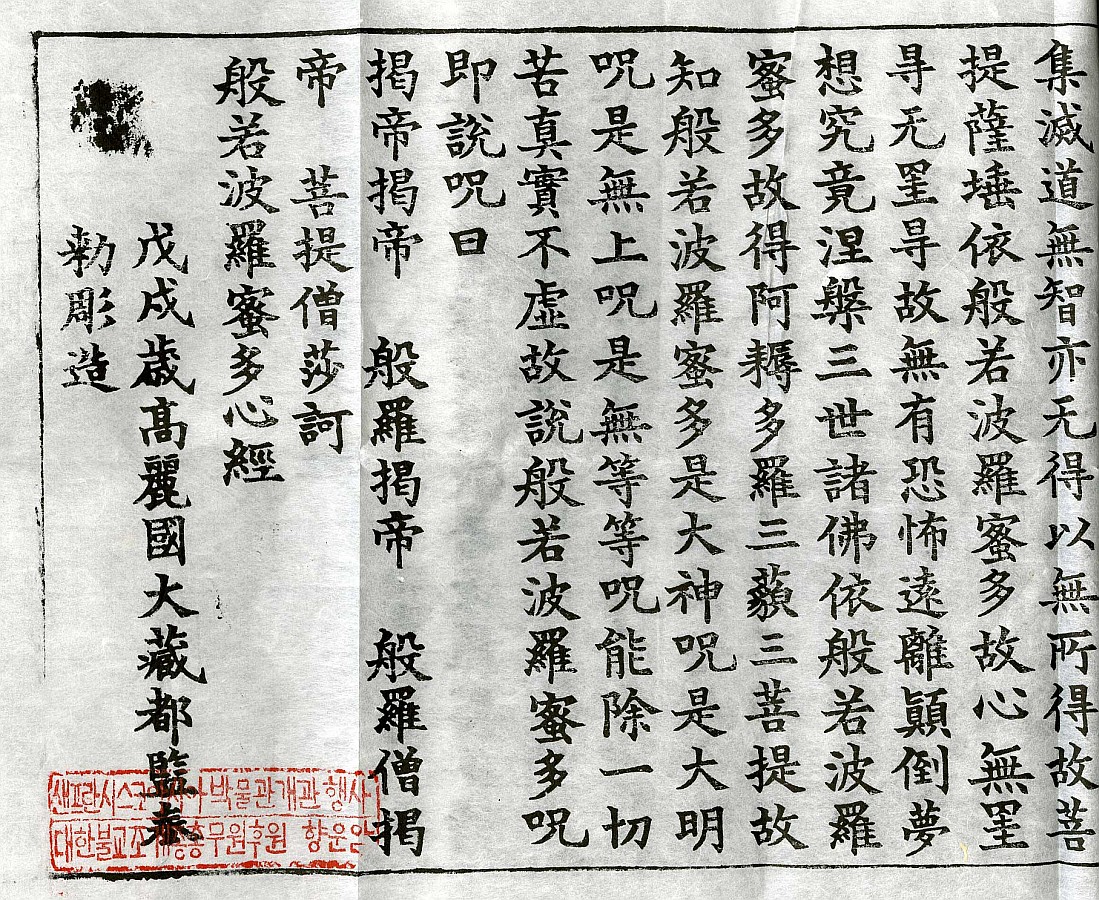 集滅道無智亦无得以無所得故菩
提薩埵依般若波羅蜜多故心無罣
㝵无罣㝵故無有恐怖遠離顚倒夢
想究竟涅槃三世諸佛依般若波羅
蜜多故得阿耨多羅三藐三菩提故
知般若波羅蜜多是大神呪是大明
呪是無上呪是無等等呪能除一切
苦真實不虛故說般若波羅蜜多呪
即說呪曰
揭帝揭帝 般羅揭帝 般羅僧揭
帝 菩提僧莎訶
般若波羅蜜多心經
戊戌歲高麗國大藏都監奉
勅彫造
샌프란시스코 박물관개관 행사
대한불교조계종총무원후원 향운암